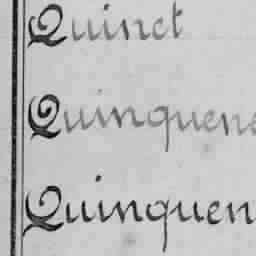 Quinet
Quinquene
Quinquen